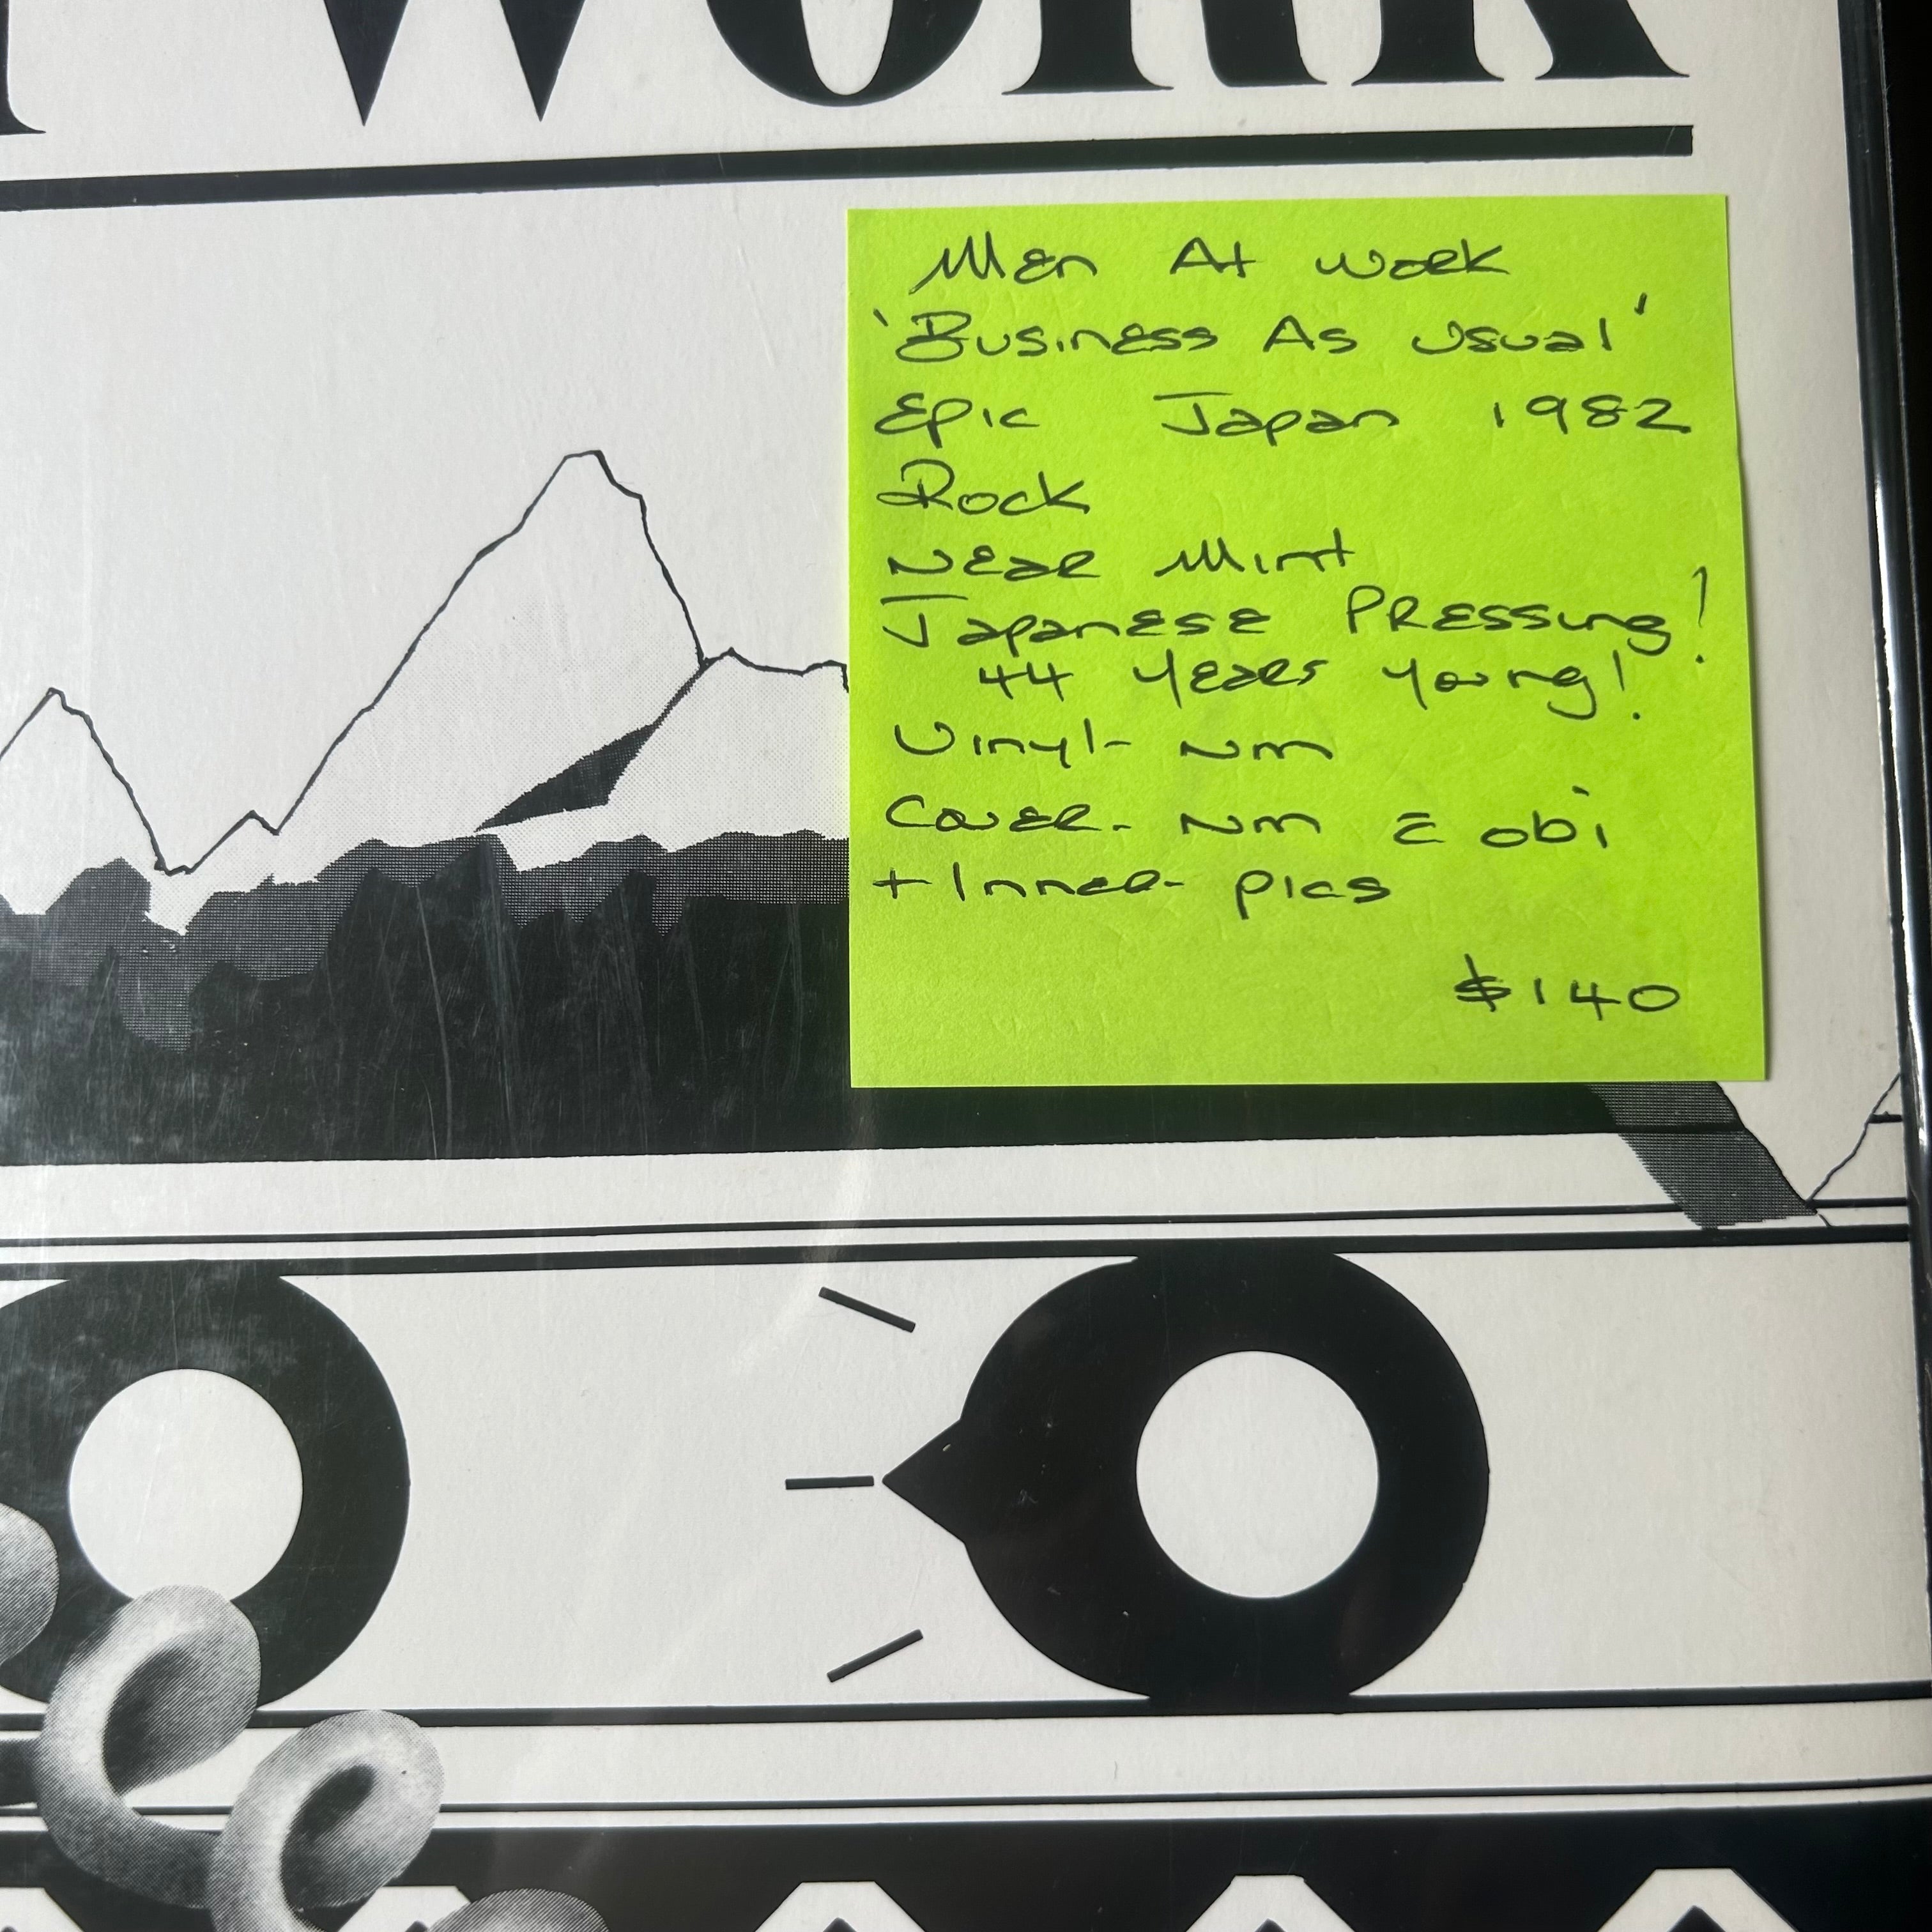 WORK
Men At Work
'Business As Usual'
Epic Japan 1982
Rock
Near Mint
Japanese Pressing!
44 years young!
Vinyl- NM
Cover- NM c̄ obi
+ Inner- pics
$140